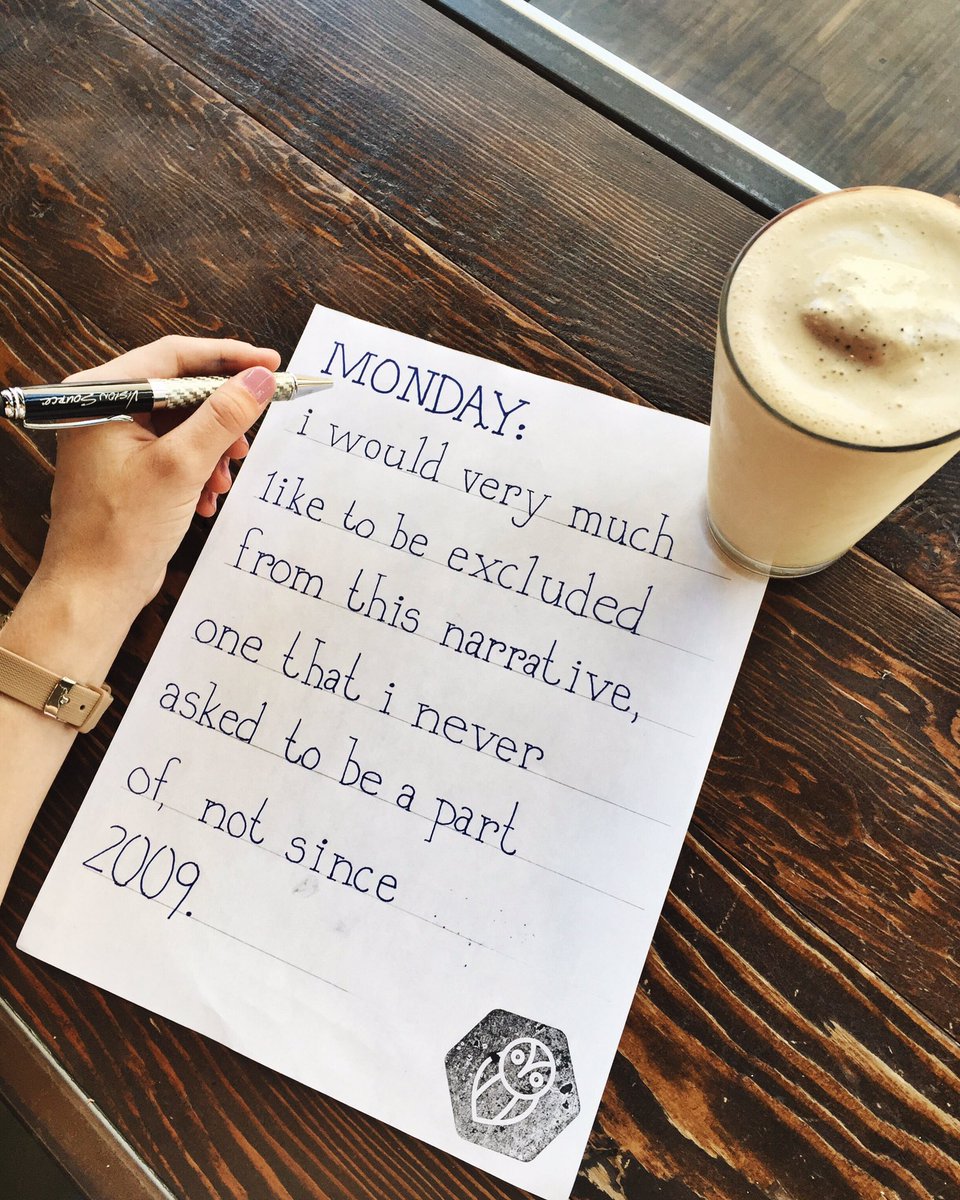 MONDAY:
i would very much
like to be excluded
from this narrative,
one that i never
asked to be a part
of, not since
2009.
VISION SOURCE